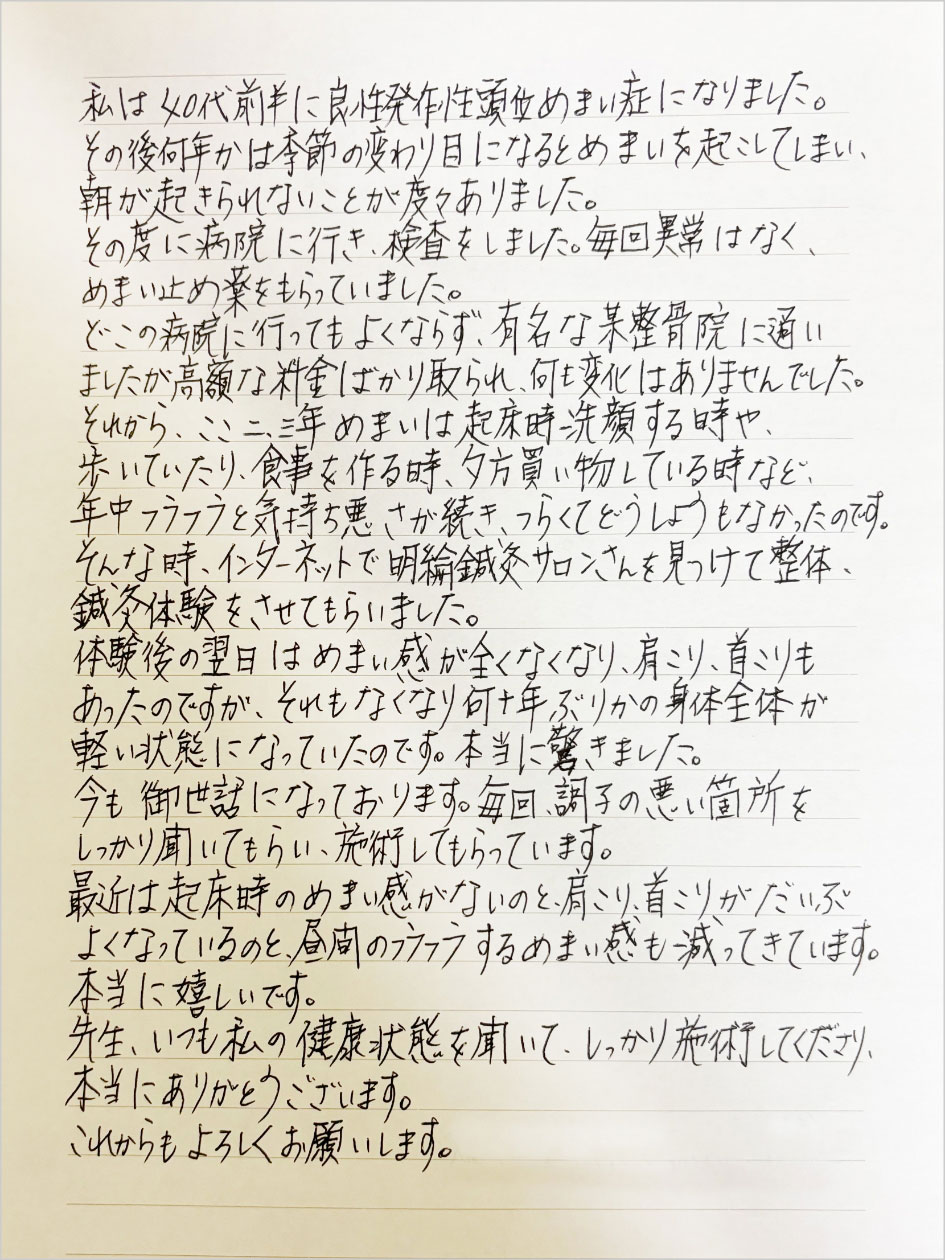 私は40代前半に良性発作性頭位めまい症になりました。
その後何年かは季節の変わり目になるとめまいを起こしてしまい、
朝が起きられないことが度々ありました。
その度に病院に行き、検査をしました。毎回異常はなく、
めまい止め薬をもらっていました。
どこの病院に行ってもよくならず、有名な某整骨院に通い
ましたが高額な料金ばかり取られ、何も変化はありませんでした。
それから、ここ二、三年めまいは起床時、洗顔する時や、
歩いていたり、食事を作る時、夕方買い物している時など、
年中フラフラと気持ち悪さが続き、つらくてどうしようもなかったのです。
そんな時、インターネットで明綸鍼灸サロンさんを見つけて整体、
鍼灸体験をさせてもらいました。
体験後の翌日はめまい感が全くなくなり、肩こり、首こりも
あったのですが、それもなくなり何十年ぶりかの身体全体が
軽い状態になっていたのです。本当に驚きました。
今も御世話になっております。毎回、調子の悪い箇所を
しっかり聞いてもらい、施術してもらっています。
最近は起床時のめまい感がないのと、肩こり、首こりがだいぶ
よくなっているのと、昼間のフラフラするめまい感も減ってきています。
本当に嬉しいです。
先生、いつも私の健康状態を聞いて、しっかり施術してくださり、
本当にありがとうございます。
これからもよろしくお願いします。